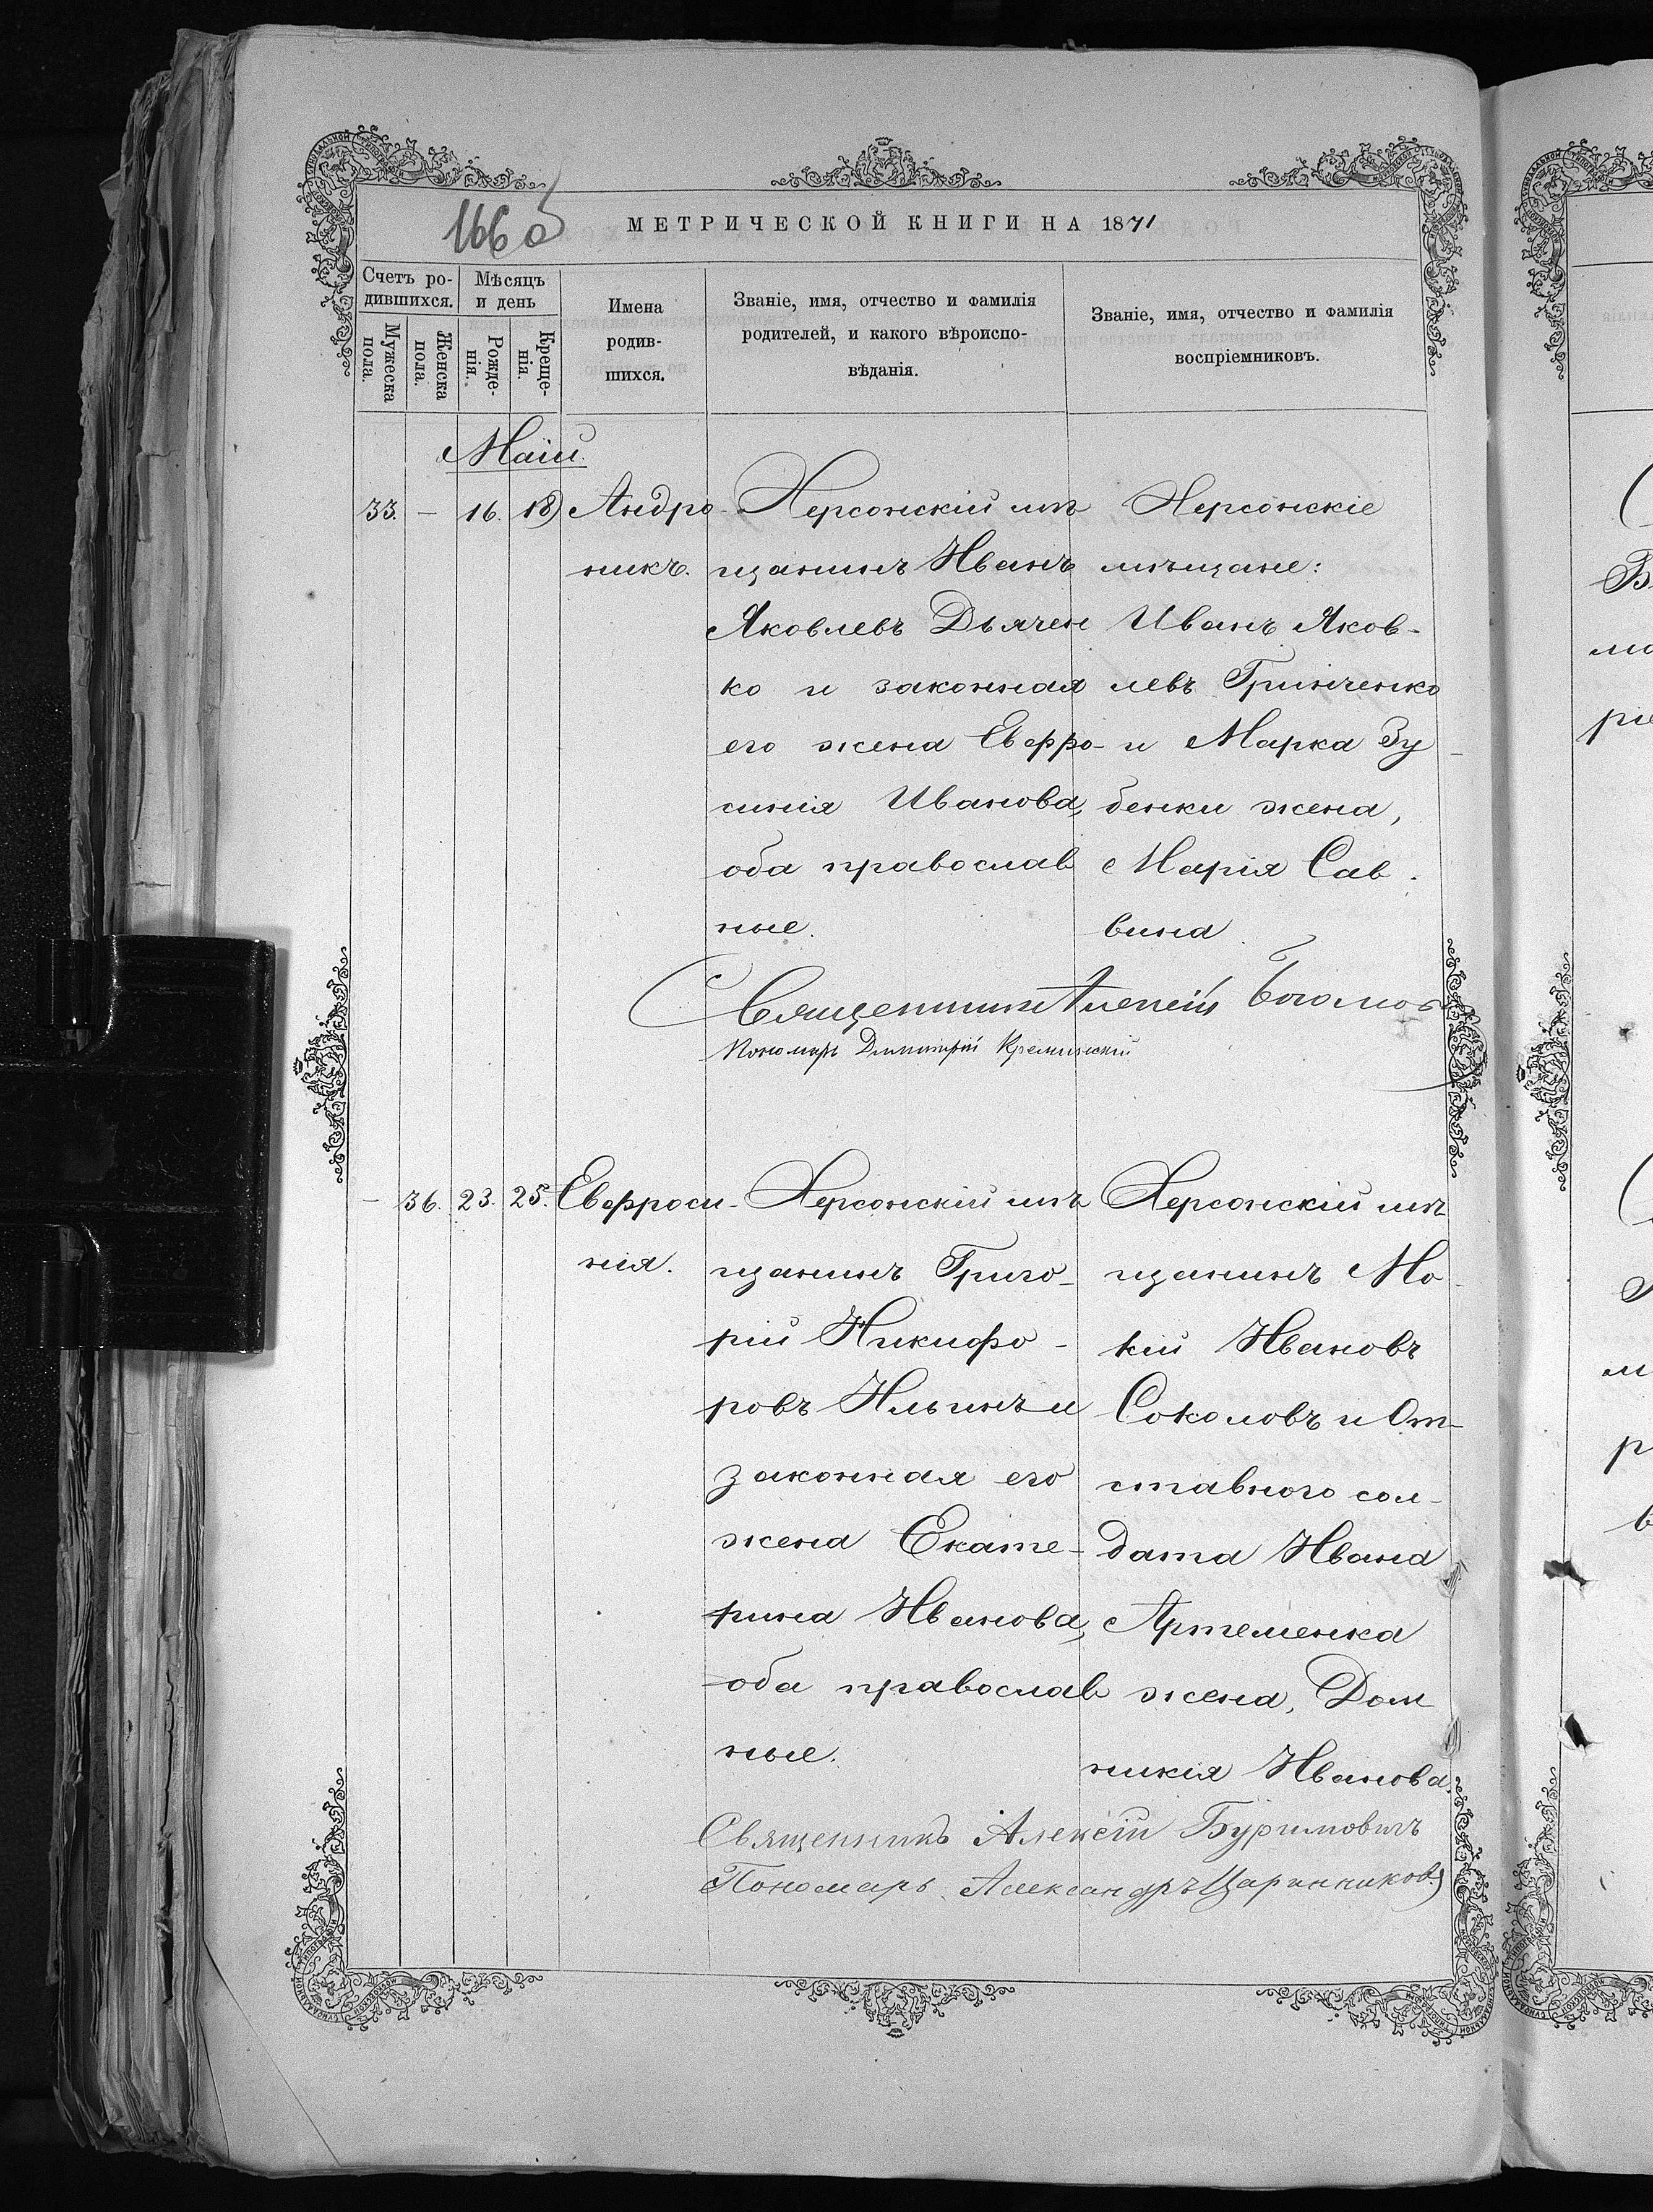 166 об
МЕТРИЧЕСКОЙ КНИГИ НА 1871
Счетъ ро-
дившихся.
Мужеска
пола.
Женска
пола.
Мѣсяцъ
и день
Рожде-
нія.
Креще-
нія.
Имена
родив-
шихся.
Званіе, имя, отчество и фамилія
родителей, и какого вѣроиспо-
вѣданія.
Званіе, имя, отчество и фамилія
воспріемниковъ.
Маій.
33. — 16. 18
Андро-
никъ.
Херсонскій мѣ
щанинъ Иванъ
Яковлевъ Дьячен
ко и законная
его жена Евфро-
синія Иванова,
оба православ
ные.
Херсонскіе
мѣщане:
Иванъ Яков-
левъ Гринченко
и Марка Зу-
бенки жена,
Марія Сав-
вина.
Священникъ Алексій
Пономарь Димитрій
— 36. 23. 25.
Евфроси-
нія.
Херсонскій мѣ
щанинъ Григо-
рій Никифо-
ровъ Ильинъ и
законная его
жена Екате-
рина Иванова,
оба православ
ные.
Херсонскій мѣ
щанинъ Мо-
кій Ивановъ
Соколовъ и От-
ставного сол-
дата Ивана
Артеменка
жена, Дом
никія Иванова.
Священникъ Алексій Буримовичъ
Пономарь Александръ Царинниковъ